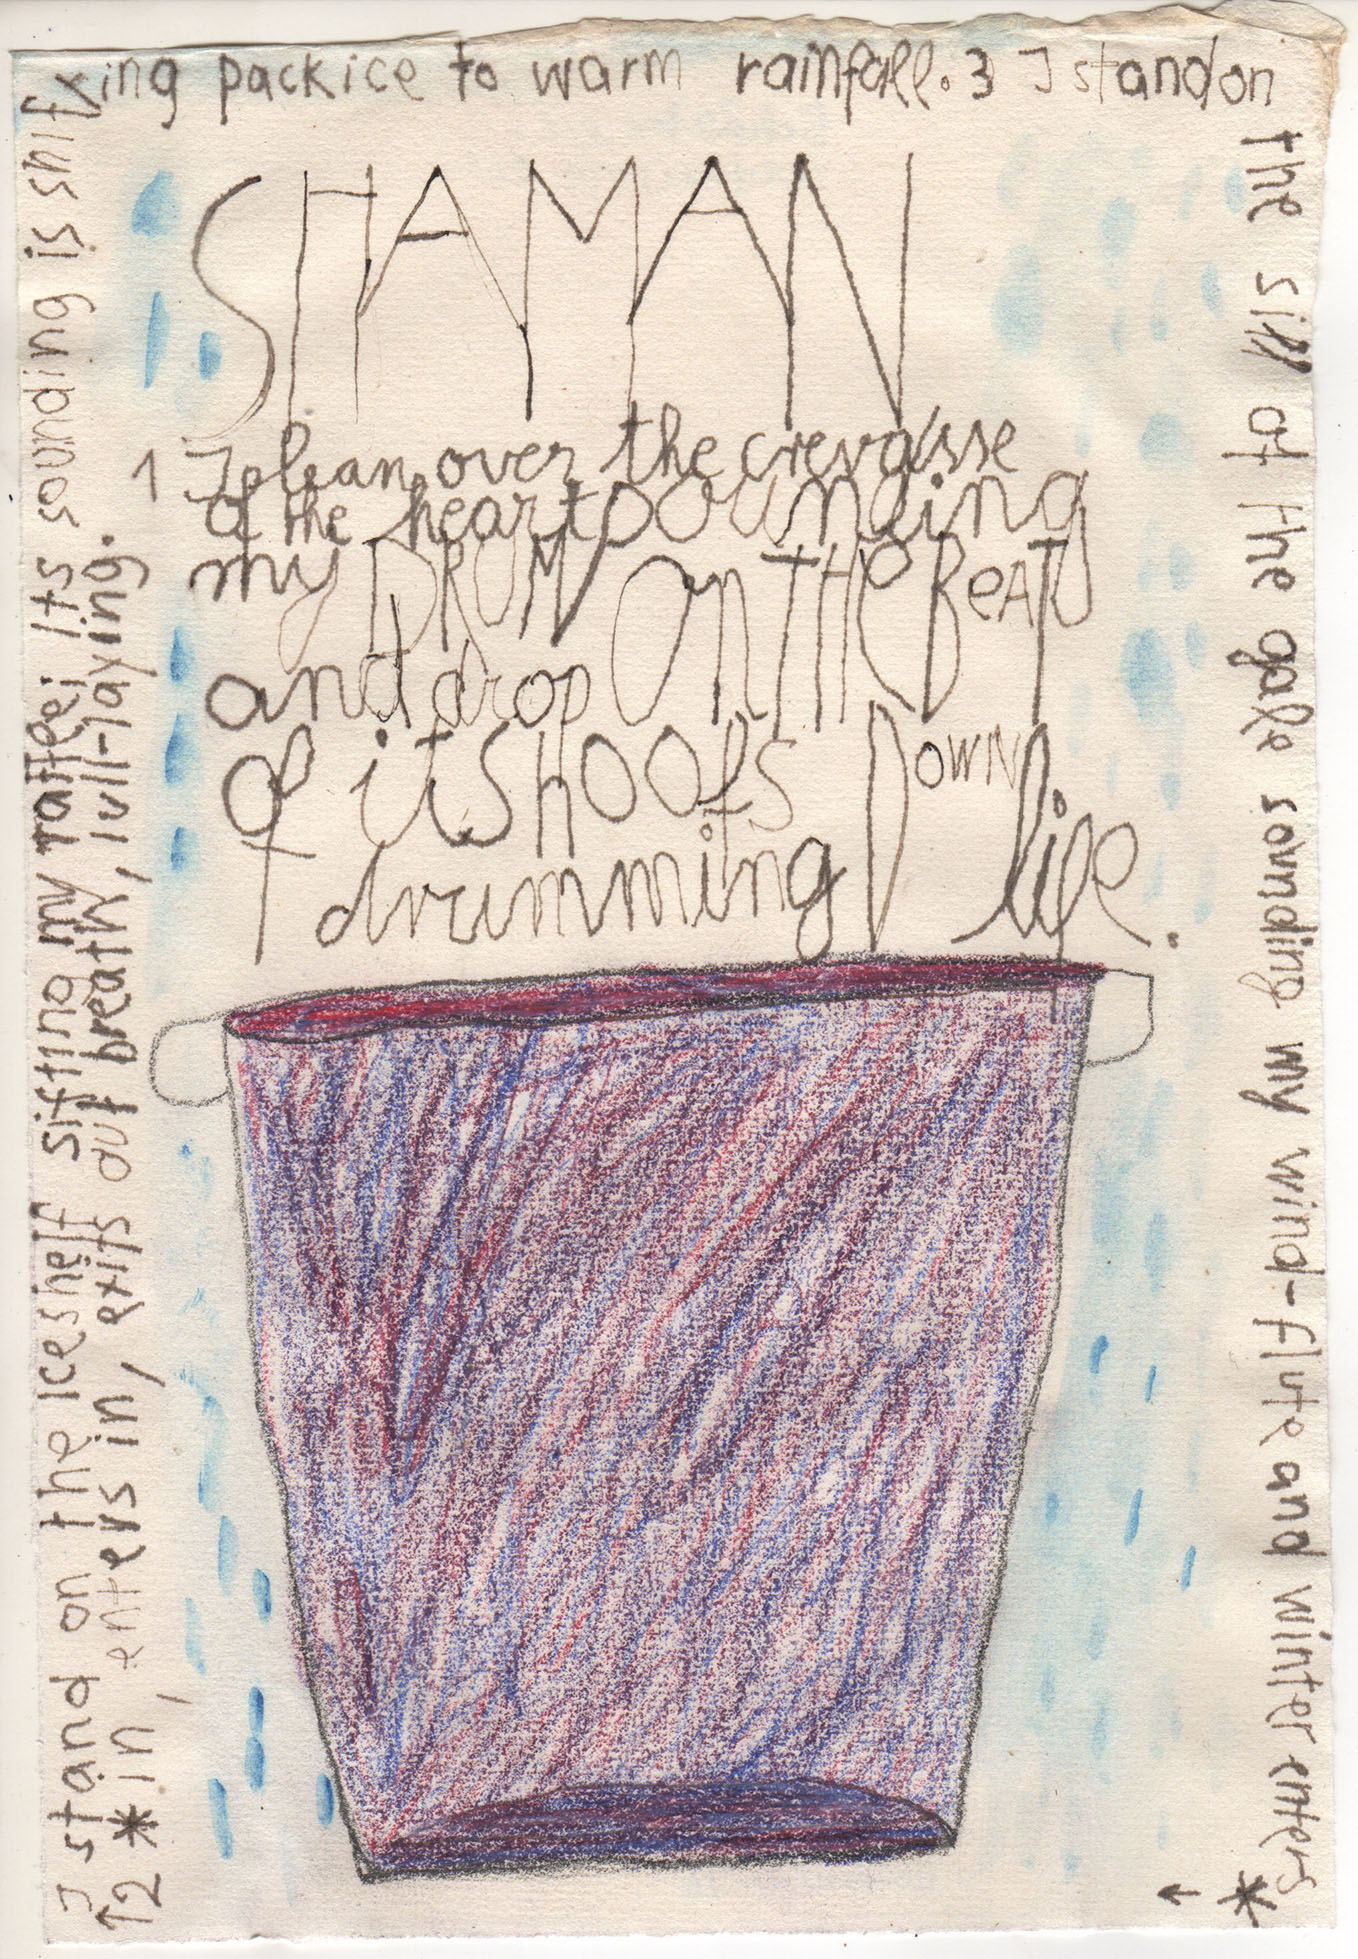 SHAMAN
1 I lean over the crevasse
of the heart pounding
my DRUM ON THE BEAT
and drop
of its HOOfS DOWN
drumming life.
↑2 I stand on the iceshelf sifting my rattle; its sounding is shif
ting packice to warm rainfall. 3 I stand on
the sill of the gale sounding my wind-flute and winter enters * ←
* in, enters in, exits out breath, lull-laying.